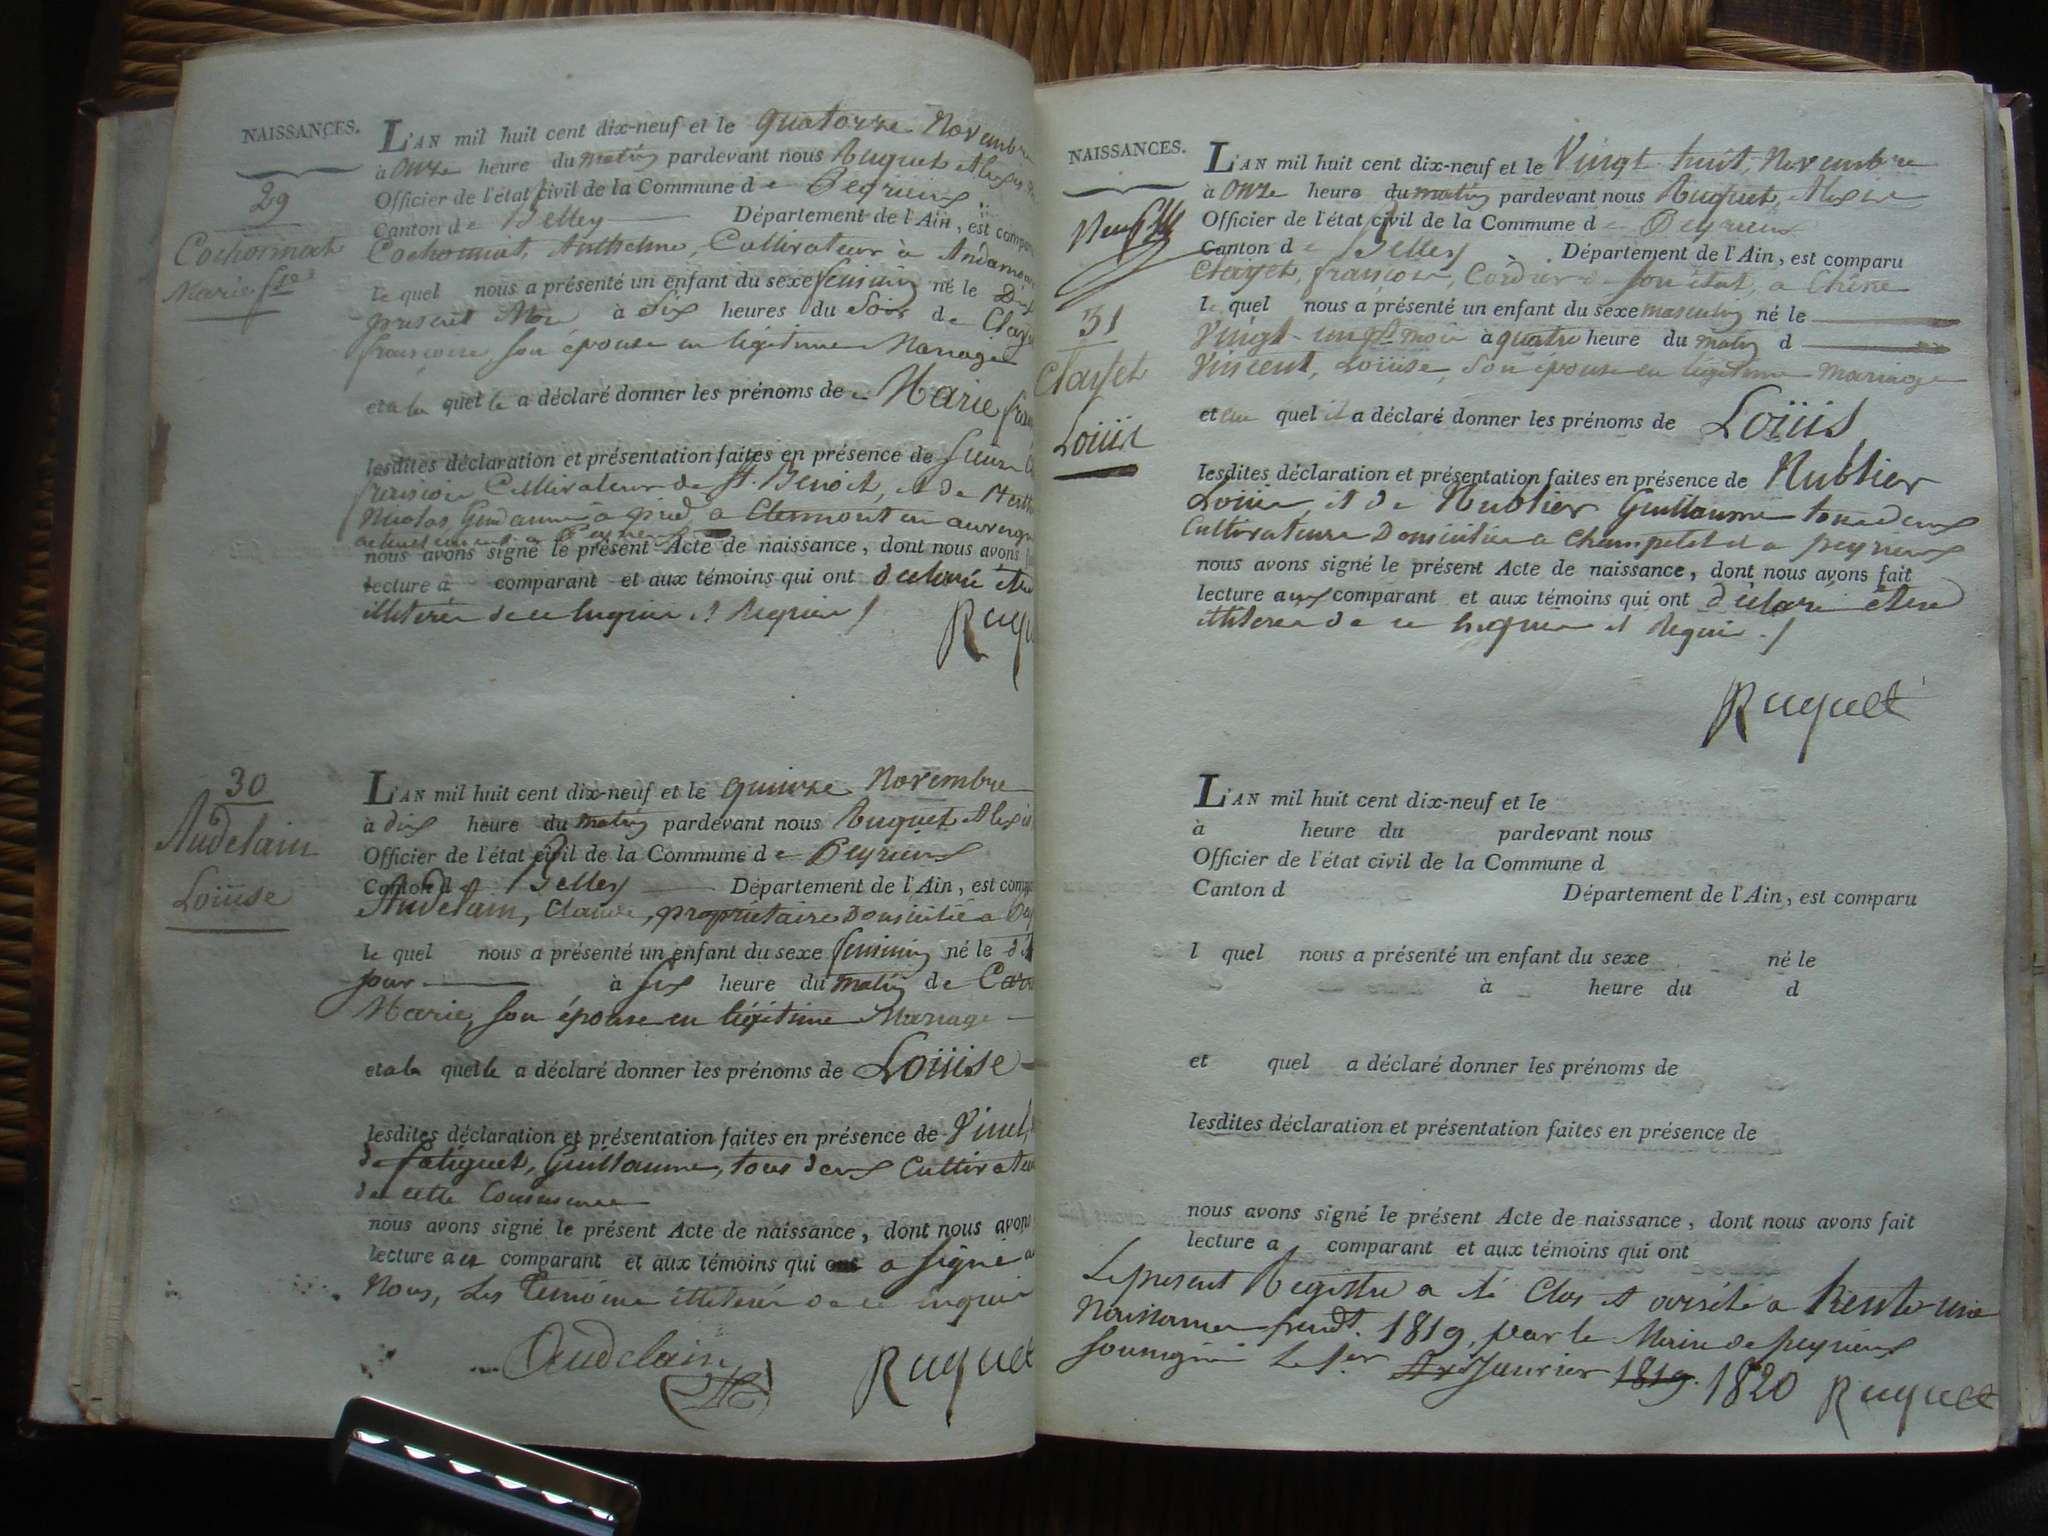 NAISSANCES.
29
Cochonnat
Marie fse
L'AN mil huit cent dix-neuf et le quatorze Novembre
à onze heure du matin pardevant nous Ruquet Alexis
Officier de l'état civil de la Commune de Peyrieux
Canton de Belley Département de l'Ain, est comparu
Cochonnat, Anthelme, Cultivateur à
le quel nous a présenté un enfant du sexe feminin né le Dix
present Mois à Six heures du Soir de
françoise, son épouse en légitime Mariage
et a la quelle a déclaré donner les prénoms de Marie
lesdites déclaration et présentation faites en présence de
françois Cultivateur de St. Benoit, et de
Nicolas, Gendarme à pied, a Clermont en auvergne
actuellement a Peyrieux
nous avons signé le présent Acte de naissance, dont nous avons
lecture a comparant et aux témoins qui ont declaré être
illiterés de ce enquis et Requis /
Ruqu
30
Audelain
Loüise
L'AN mil huit cent dix-neuf et le quinze Novembre
à dix heure du matin pardevant nous Ruquet Alexis
Officier de l'état civil de la Commune de Peyrieux
Canton de Belley Département de l'Ain, est comp
Audelain, Claude, propriétaire Domicilié a Pey
le quel nous a présenté un enfant du sexe feminin né le dit
jour à six heure du matin de
Marie, son épouse en légitime Mariage
et a la quelle a déclaré donner les prénoms de Loüise
lesdites déclaration et présentation faites en présence de
de fatiguet, Guillaume, tous deux Cultivateurs
de cette Commune
nous avons signé le présent Acte de naissance, dont nous avons
lecture au comparant et aux témoins qui ont a signé a
Nous, Les Témoins illiterés de ce enquis
Audelain
Ruquet
NAISSANCES.
31
Clayet
Loüis
L'AN mil huit cent dix-neuf et le Vingt huit Novembre
à onze heure du matin pardevant nous Ruquet, Alexis
Officier de l'état civil de la Commune de Peyrieux
Canton de Belley Département de l'Ain, est comparu
Clayet, françois, Cordier de son état, a Chêne
le quel nous a présenté un enfant du sexe masculin né le
Vingt-un dt. mois à quatre heure du matin d
Vincent, Loüise, Son épouse en légitime mariage
et au quel il a déclaré donner les prénoms de Loüis
lesdites déclaration et présentation faites en présence de Nublier
Loüis, et de Nublier Guillaume tous deux
Cultivateurs Domiciliés a Champetel et a peyrieux
nous avons signé le présent Acte de naissance, dont nous avons fait
lecture aux comparant et aux témoins qui ont déclaré être
illiterés de ce enquis et Requis. /
Ruquet
L'AN mil huit cent dix-neuf et le
à heure du pardevant nous
Officier de l'état civil de la Commune d
Canton d Département de l'Ain, est comparu
l quel nous a présenté un enfant du sexe né le
à heure du d
et quel a déclaré donner les prénoms de
lesdites déclaration et présentation faites en présence de
nous avons signé le présent Acte de naissance, dont nous avons fait
lecture a comparant et aux témoins qui ont
Le present Registre a été Clos et arrêté a trente-une
Naissances pendt. 1819, par le Maire de peyrieux
soussigné Le 1er Janvier 1819. 1820 Ruquet